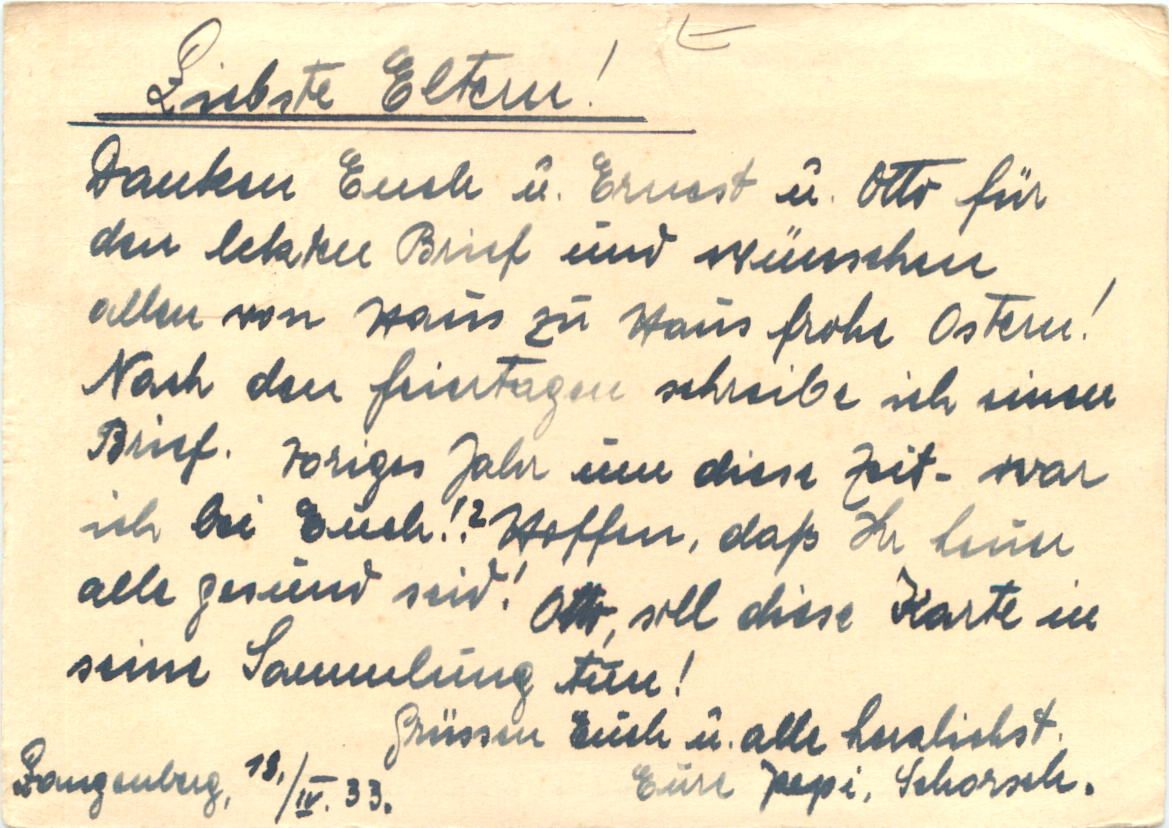 Liebste Eltern!
Danken Euch u. Ernest u. Otto für
den letzten Brief und wünschen
allen von Haus zu Haus frohe Ostern!
Nach den Feiertagen schreibe ich einen
Brief. Voriges Jahr um diese Zeit - war
ich bei Euch!? Hoffen, daß Ihr heuer
alle gesund seid! Otto, soll diese Karte in
seine Sammlung tun!
Grüssen Euch u. alle herzlichst.
13./IV. 33. Eure Pepi, Schorsch.